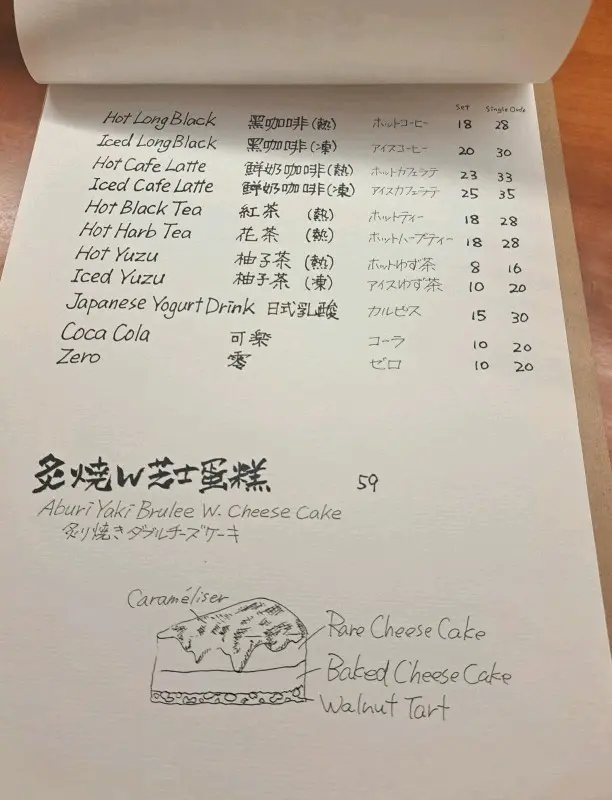 Set Single Orde
Hot Long Black 黑咖啡(熱) ホットコーヒー 18 28
Iced Long Black 黑咖啡(凍) アイスコーヒー 20 30
Hot Cafe Latte 鮮奶咖啡(熱) ホットカフェラテ 23 33
Iced Cafe Latte 鮮奶咖啡(凍) アイスカフェラテ 25 35
Hot Black Tea 紅茶 (熱) ホットティー 18 28
Hot Harb Tea 花茶 (熱) ホットハーブティー 18 28
Hot Yuzu 柚子茶 (熱) ホットゆず茶 8 16
Iced Yuzu 柚子茶 (凍) アイスゆず茶 10 20
Japanese Yogurt Drink 日式乳酸 カルピス 15 30
Coca Cola 可樂 コーラ 10 20
Zero 零 ゼロ 10 20
炙燒W芝士蛋糕 59
Aburi Yaki Brulee W. Cheese Cake
炙り焼きダブルチーズケーキ
Caraméliser
Rare Cheese Cake
Baked Cheese Cake
Walnut Tart